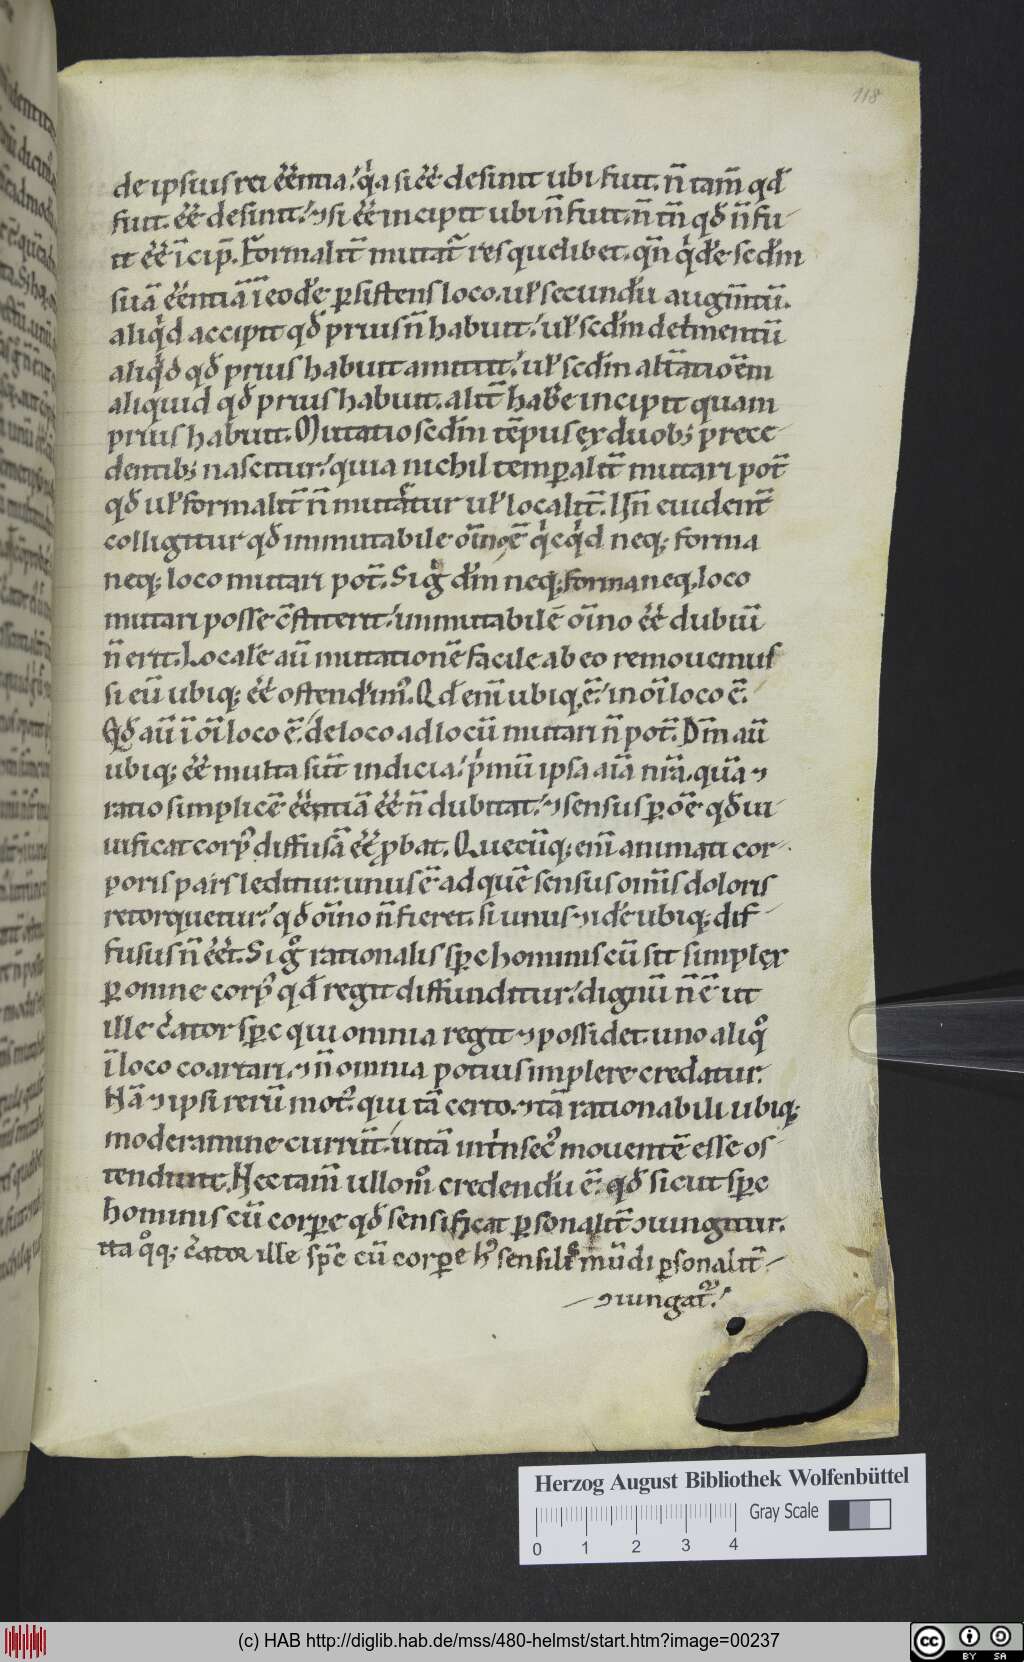 118
de ipsius rei ẽẽntia. qͥa si ẽẽ desinit ubi fuit. ñ tam̃ qđ
fuit. ẽẽ desinit. ⁊ si ẽẽ incipit ubi ñ fuit. ñ tñ qđ ñ fu-
it ẽẽ ĩcip̃. Formalit̃ mutat̃ res quelibet. qñ qͥđe scđm
suã ẽẽntiã ĩ eođe ꝑsistens loco. uł secunđu augm̃tũ.
aliqͥd accipit qđ prius ñ habuit. uł scđm det̉mentũ
aliqͥd qđ prius habuit amittit. uł scđm alt̃atioẽm
aliquid qđ prius habuit. alit̃ hab̃e incipit quam
prius habuit. Mutatio scđm tẽpus ex duob; prece-
dentib; nascitur. quia nichil temꝑalit̃ mutari pot̃
qđ uł formalit̃ ñ mutatur uł localit̃. Hñ euident̃
colligitur qđ immutabile oĩno ẽ qͥcqͥd neq; forma
neq; loco mutari pot̃. Si gͦ dm̃ neq; forma neq. loco
mutari posse c̃stiterit. immutabilẽ oĩno ẽẽ dubiũ
ñ erit. Localẽ aũ mutationẽ facile ab eo remouemus
si eũ ubiq; ẽẽ ostendim᷒. Qđ enĩ ubiq. ẽ. in oĩ loco ẽ.
Qđ aũ ĩ oĩ loco ẽ. de loco ad locũ mutari ñ pot̃. Dm̃ aũ
ubiq; ẽẽ multa sũt indicia. pͥmũ ipsa aĩa nr̃a. quã ⁊
ratio simplicẽ ẽẽntiã ẽẽ ñ dubitat. ⁊ sensus ꝑ oẽ qđ ui-
uificat corp᷒ diffusã ẽẽ ꝓbat. Quecũq; enĩ animati cor-
poris pars leditur. unus ẽ ad quẽ sensus om̃is doloris
retorquetur. qđ oĩno ñ fieret. si unus ⁊ iđe ubiq; dif-
fusus ñ ẽẽt. Si gͦ rationalis spc̃ hominis cũ sit simplex
ꝑ omne corp᷒ qđ regit diffunditur. dignũ ñ ẽ ut
ille c̉ator spc̃ qui omnia regit ⁊ possidet. uno aliqͦ
ĩ loco coartari. ⁊ ñ omnia potius implere credatur.
Nã ⁊ ipsi rerũ mot᷒. qui tã certo. ⁊ tã rationabili ubiq;
moderamine currũt. uitã int̉nsec᷒ mouentẽ esse os-
tendunt. Nec tam̃ ullom̊ credendũ ẽ. qđ sicut spc̃
hominis cũ corꝑe qđ sensificat ꝑsonalit̃ ꝯiungitur.
ita qͦq; c̉ator ille spc̃ cũ corꝑe h᷒ sensilis mũdi ꝑsonalit̃-
-ꝯiungat᷑.
Herzog August Bibliothek Wolfenbüttel
Gray Scale
0 1 2 3 4
(c) HAB http://diglib.hab.de/mss/480-helmst/start.htm?image=00237
cc BY SA